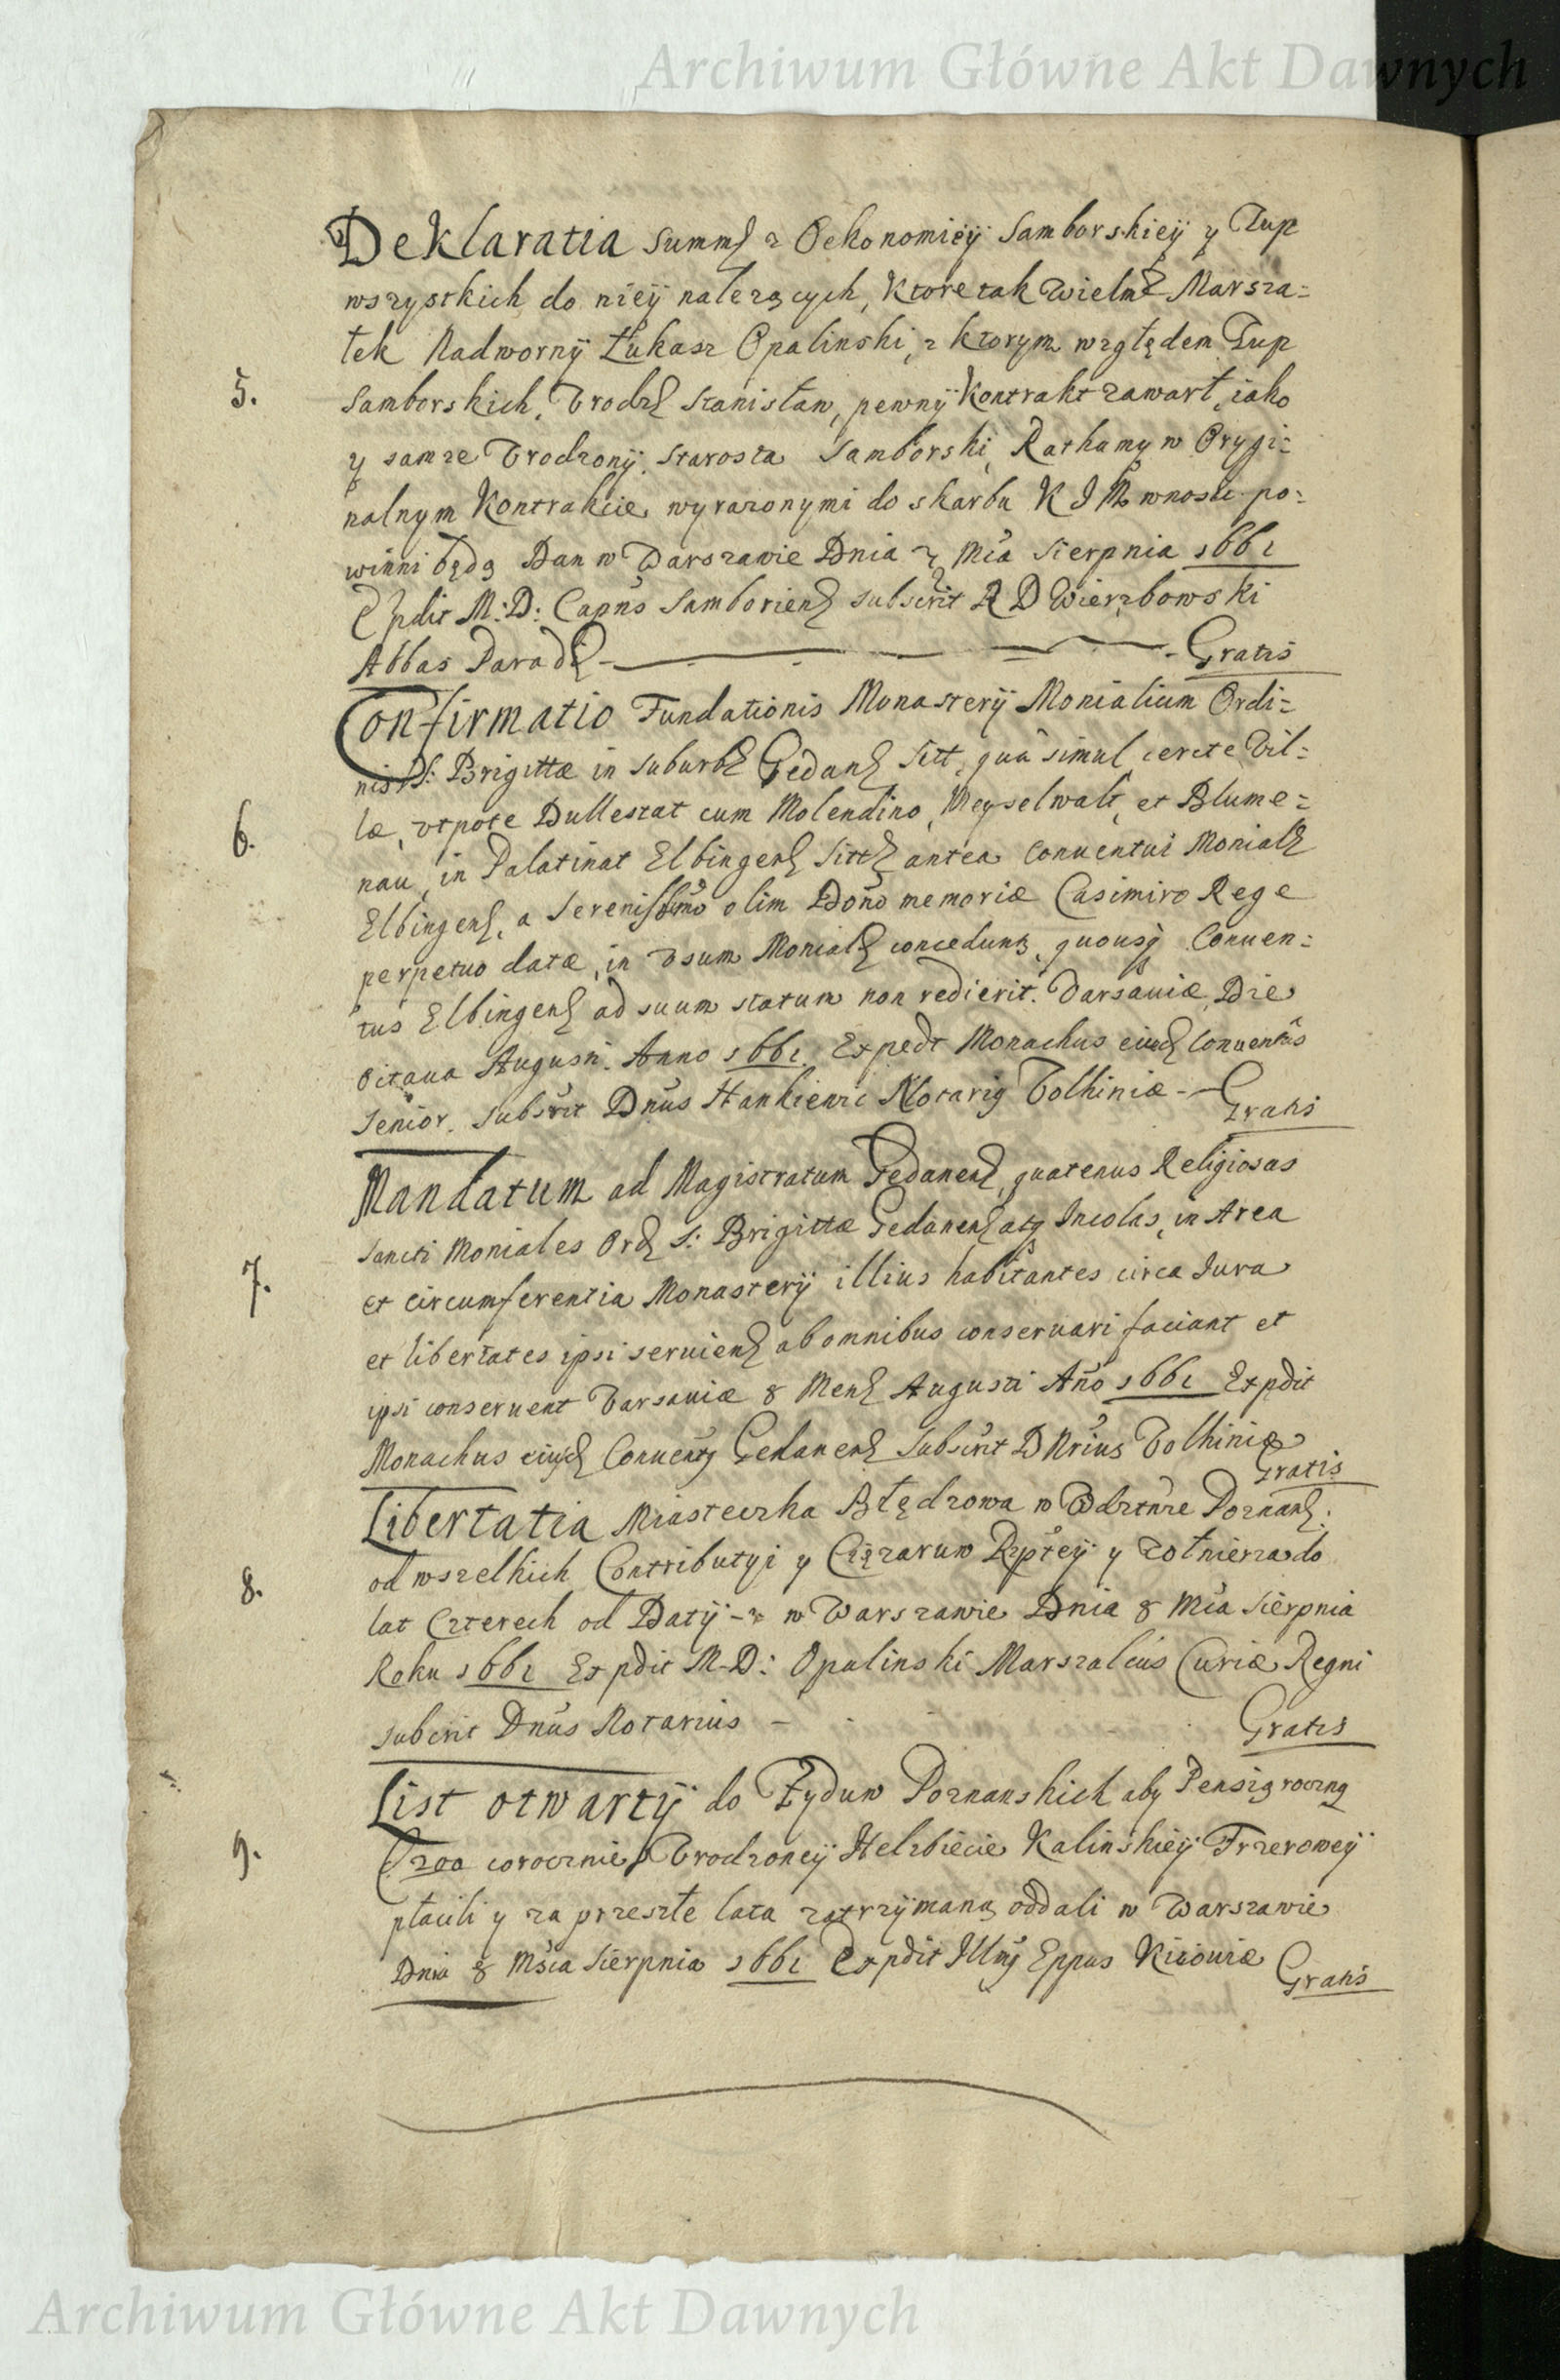 Archiwum Główne Akt Dawnych
Deklaratia summ z Oekonomiey Samborskiey y Żup
wszystkich do niey należących, Ktore tak Wielm Marsza=
łek Nadworny Łukasz Opalinski, z ktorym względem Żup
5.
Samborskich, Vrodz Stanisław, pewny Kontrakt zawarł, iako
y samże Vrodzony Starosta Samborski, Rathamy w Orygi=
nalnym Kontrakcie wyrażonymi do skarbu K J M wnosić po=
winni będą Dan w Warszawie Dnia Mca Sierpnia 1661
Expdit M: D: Capńs Samborien subscrit R D Wierzbowski
Abbas Parad Gratis
Confirmatio Fundationis Monasterÿ Monialium Ordi=
nis S: Brigittæ in suburb Gedan Sitt, quâ simul certe Vil=
6.
læ, vtpote Dullestat cum Molendino, Meyselwalt, et Blume=
nau, in Palatinat Elbingen Sitt antea Conuentui Monial
Elbingen, a Serenissimo olim Dōno memoriæ Casimiro Rege
perpetuo datæ, in vsum Monial concedunt, quousq Conuen=
tus Elbingen ad suum statum non redierit. Varsauiæ Die
Octaua Augusti Anno 1661. Expedt Monachus eiusd Conuentus
Senior. Subscrit Dnus Hankiewic Notariq Volhiniæ - Gratis
Mandatum ad Magistratum Gedanen, quatenus Religiosas
Sancti Moniales Ord S: Brigittæ Gedanen atq Incolas, in Area
7.
et circumferentia Monasterÿ illius habitantes circa Jura
et libertates ipsi seruien ab omnibus conseruari faciant et
ipsi conseruent Varsauiæ 8 Men Augusti Año 1661 Expdit
Monachus eiusd Conuentq Gedanen Subscrit D Nrius Volhiniæ
Gratis
Libertatia Miasteczka Błędzowa w Wdztwie Poznan.
od wszelkich Contributyi y Ciężaruw Rzptey y Żołnierza do
8.
lat Czterech od Daty - w Warszawie Dnia 8 Mca Sierpnia
Roku 1661 Expdit M. D: Opalinski Marszalcus Curiæ Regni
Subcrit Dnus Notarius - Gratis
List otwarty do Żyduw Poznanskich aby Pensią roczną
9.
200 corocznie Vrodzoney Helzbiecie Kalinskiey Frzerowey
płacili y za przeszłe lata zatrzymaną oddali w Warszawie
Dnia 8 Msca Sierpnia 1661 Expdit Illmq Eppus Kiiouiæ Gratis
Archiwum Główne Akt Dawnych